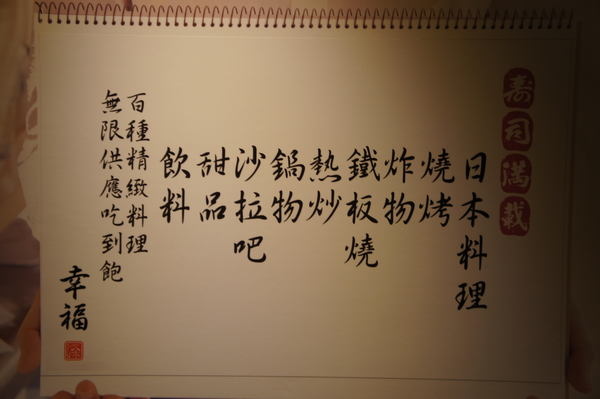 寿司満載
日本料理
燒烤
炸物
鐵板燒
熱炒
鍋物
沙拉吧
甜品
飲料
百種精緻料理
無限供應吃到飽
幸福